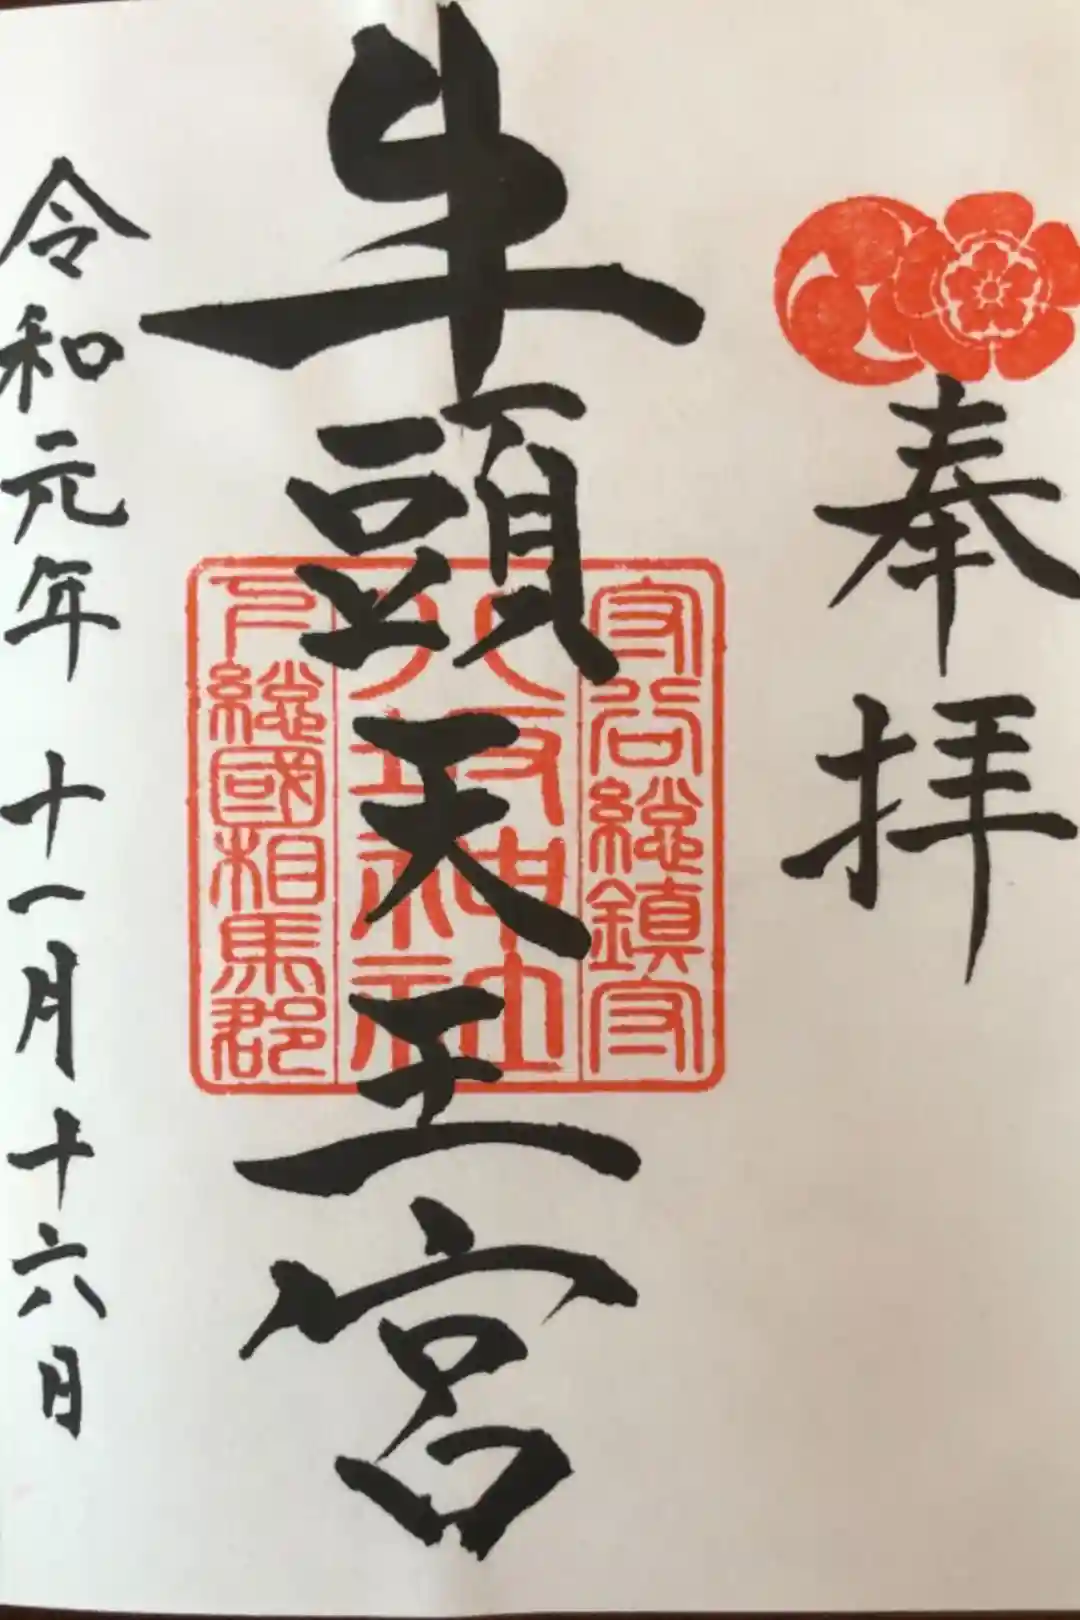 奉拝
守谷総鎮守
八坂神社
下総國相馬郡
牛頭天王宮
令和元年十一月十六日